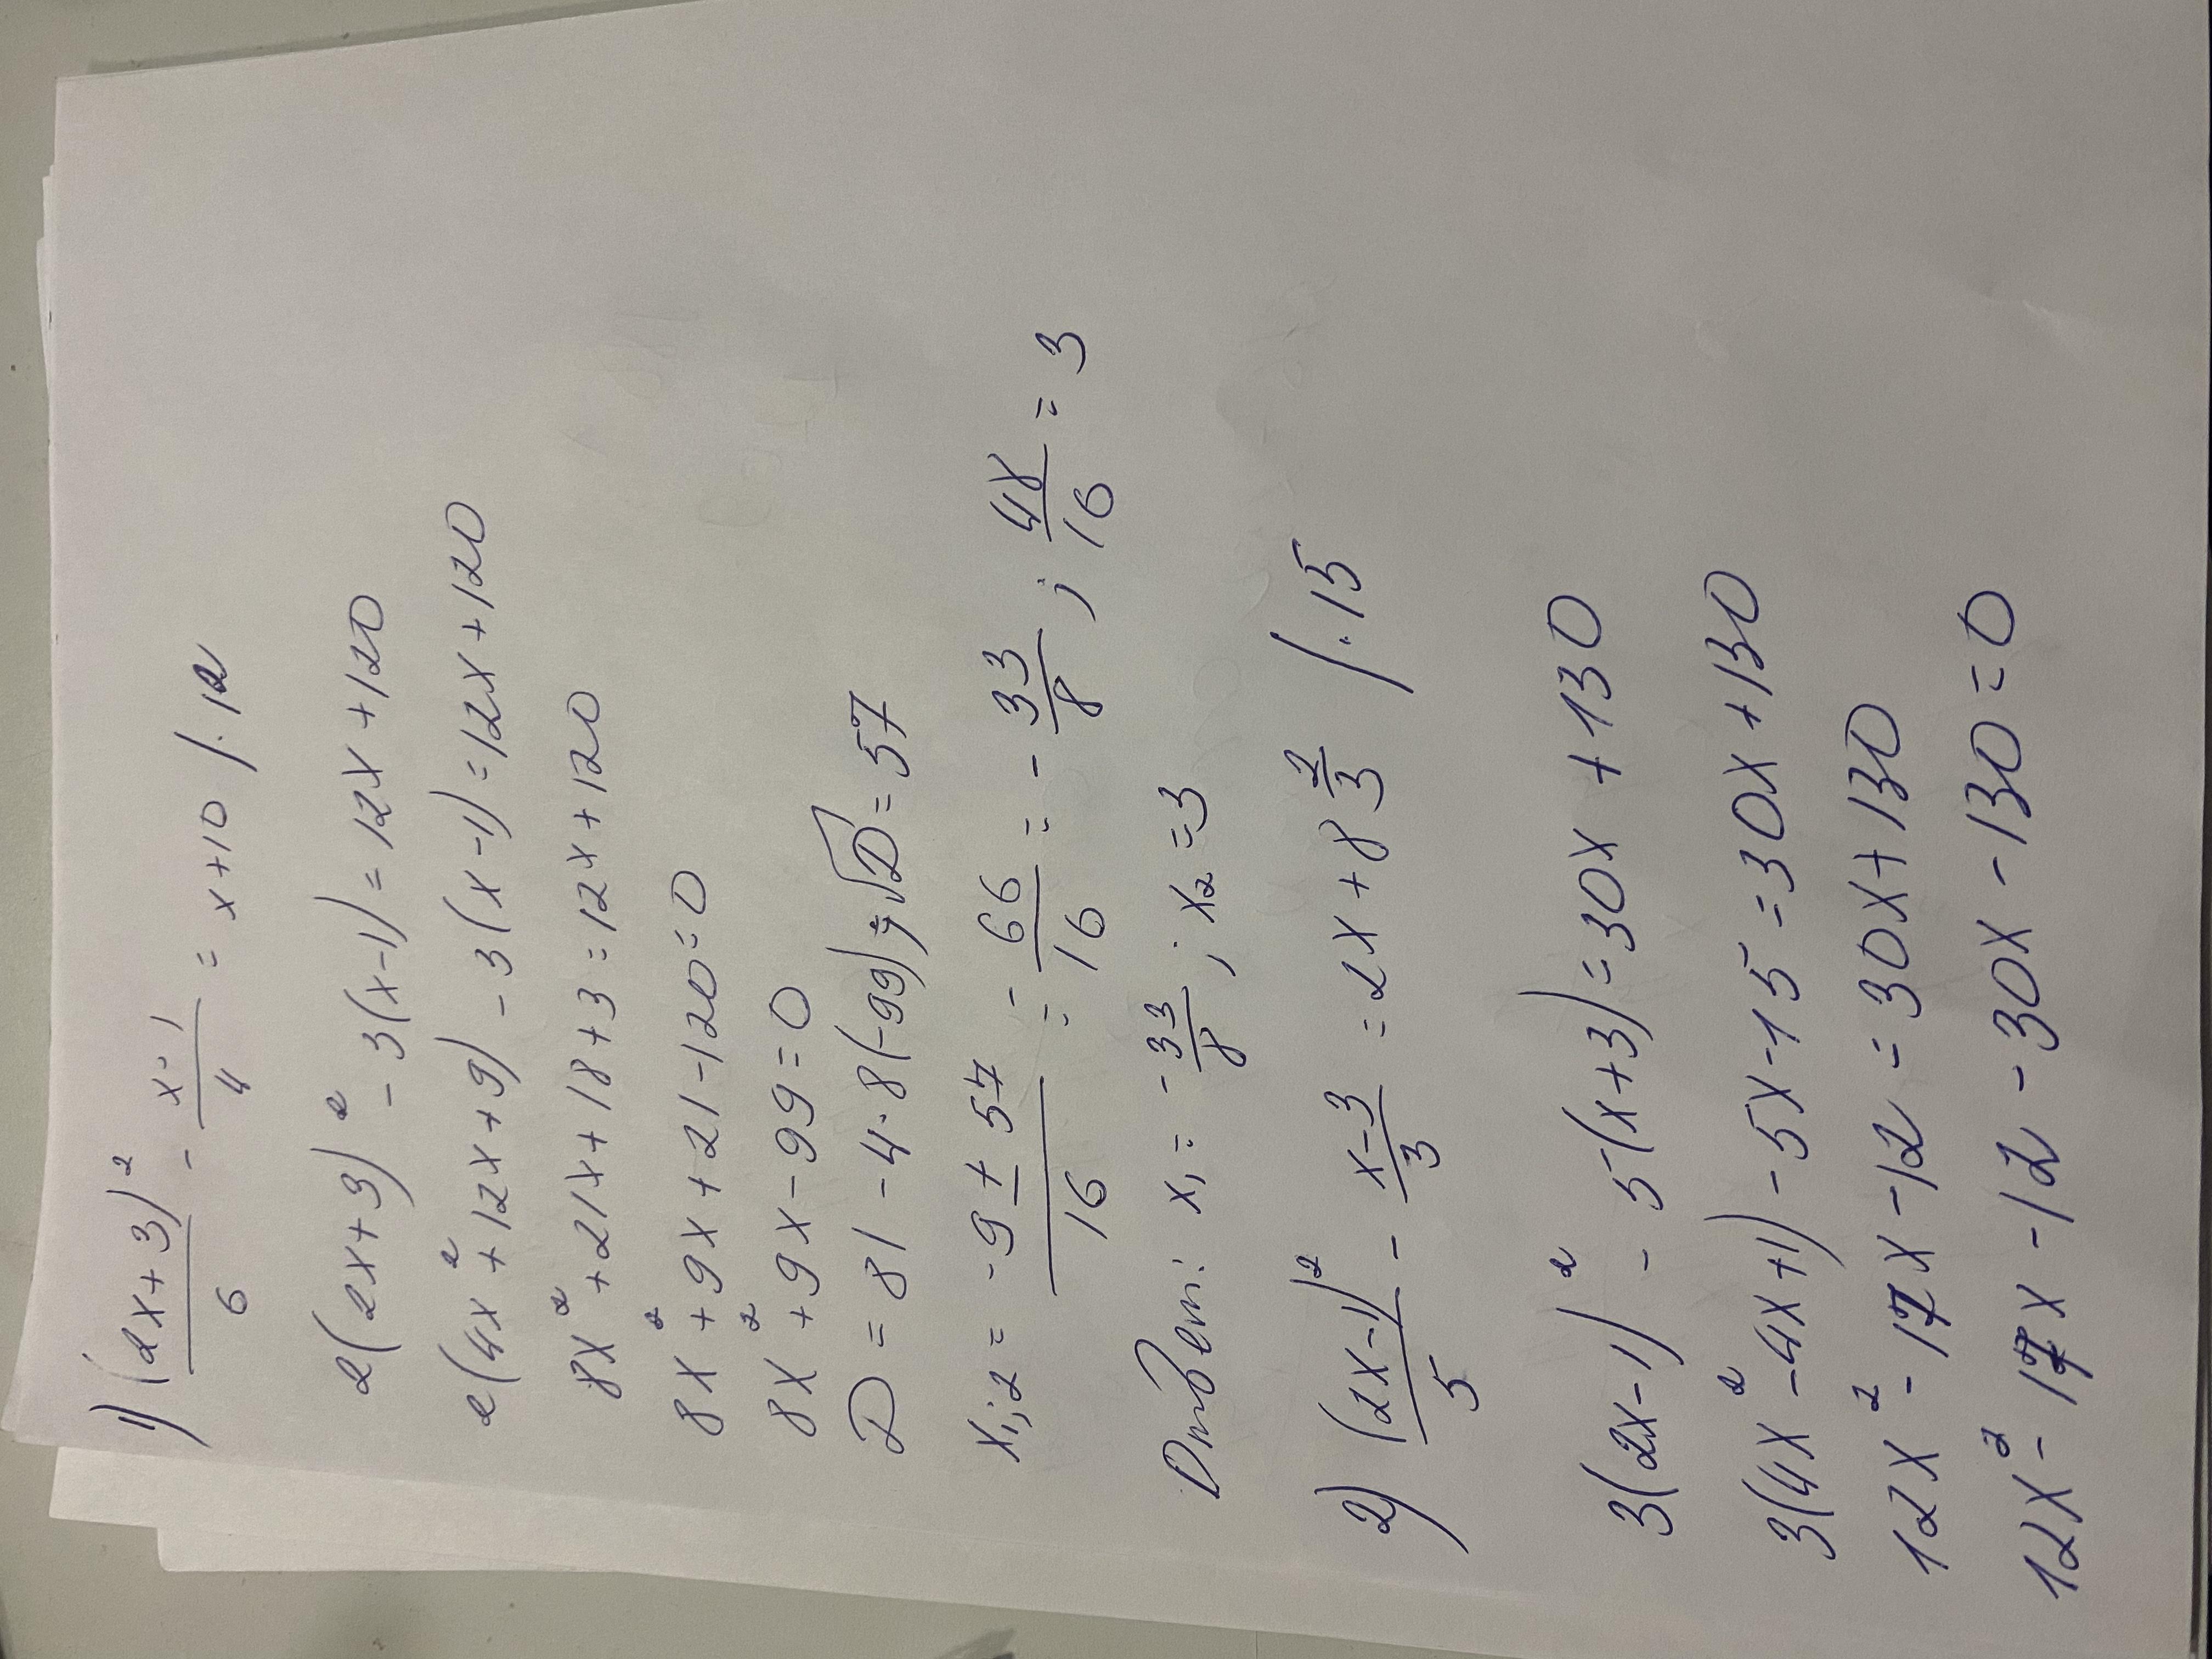 1) (2x+3)²/6 - x-1/4 = x+10 /·12
2(2x+3)² - 3(x-1) = 12x+120
2(4x²+12x+9) - 3(x-1) = 12x+120
8x²+21x+18+3=12x+120
8x²+9x+21-120=0
8x²+9x-99=0
D = 81-4·8(-99); √D = 57
x1;2 = -9±57/16 = -66/16 = -33/8; 48/16 = 3
Ответ: x1 = -33/8; x2=3
2) (2x-1)²/5 - x-3/3 = 2x+8 2/3 /·15
3(2x-1)² - 5(x+3) = 30x+130
3(4x²-4x+1)-5x-15=30x+130
12x²-17x-12=30x+130
12x²-17x-12-30x-130=0